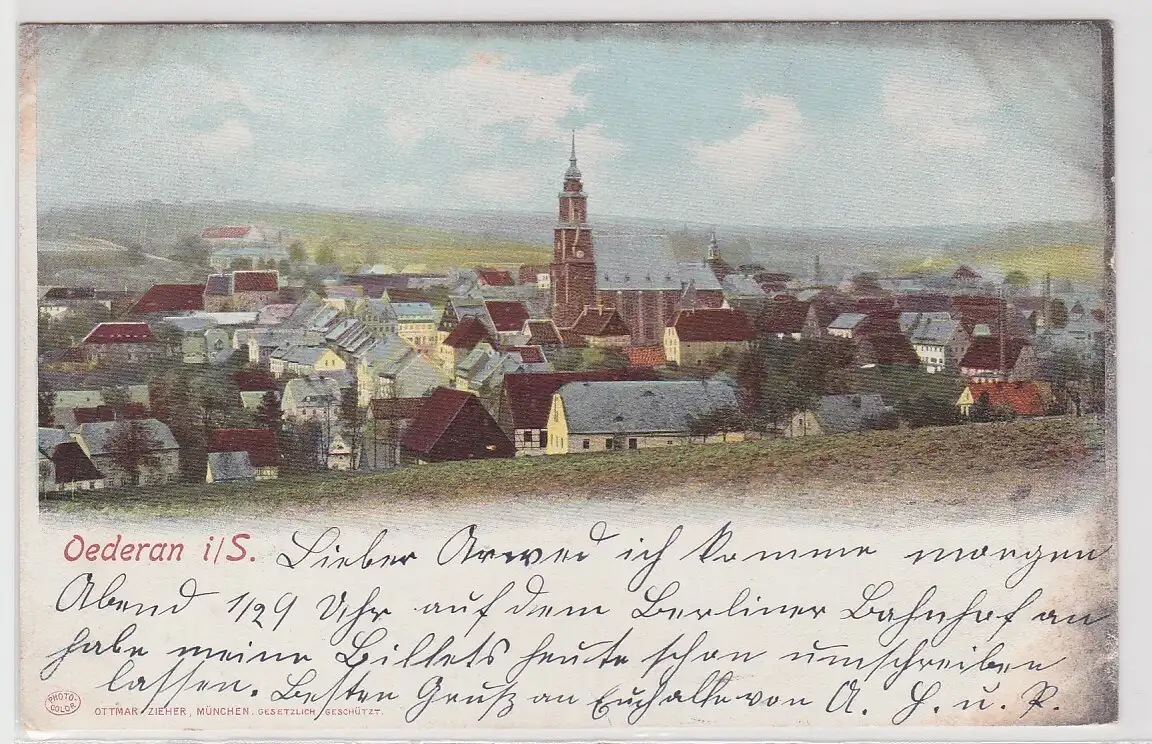 Oederan i/S. Lieber Arwed ich komme morgen
Abend 1/29 Uhr auf dem Berliner Bahnhof an
habe meine Billets heute schon umschreiben
lassen. Besten Gruß an Euch alle von A. H. u. P.
PHOTO-COLOR
OTTMAR ZIEHER, MÜNCHEN. GESETZLICH GESCHÜTZT.